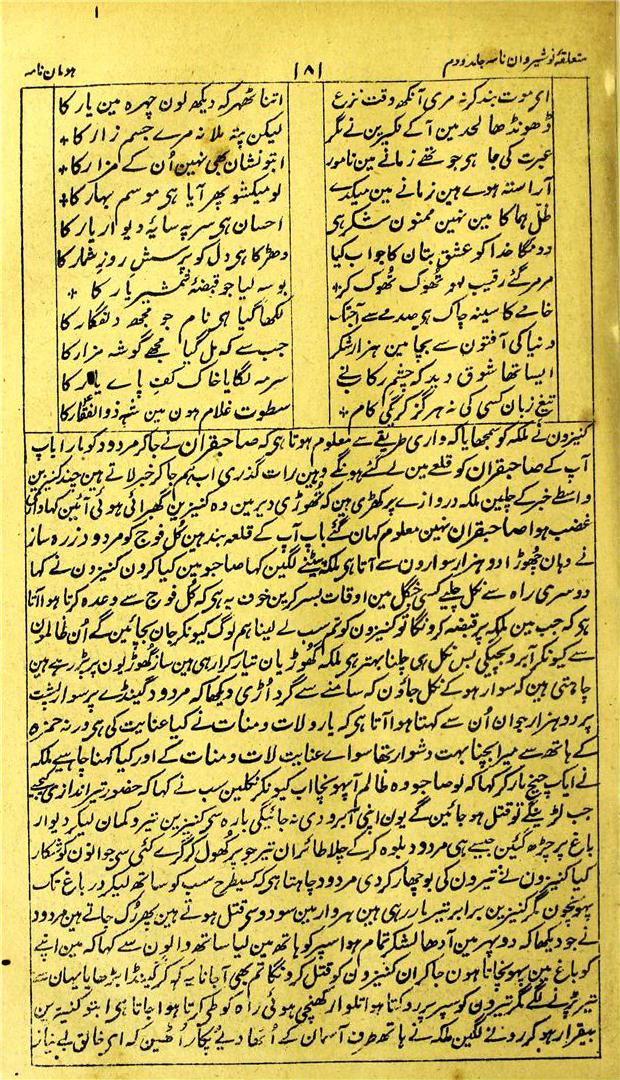 متعلقۂ نوشیروان نامہ جلد دوم
۸۱
ہومان نامہ
ای موت بند کر نہ مری آنکھ وقت نزع
اتنا ٹھہر کہ دیکھ لون چہرہ مین یار کا
ڈھونڈھا لحد مین آکے نکیرین نے مگر
لیکن پتہ ملا نہ مرے جسم زار کا
عبرت کی جا ہی جو تھے زمانے مین نامور
ابتو نشان بھی نہین اُن کے مزار کا
آراستہ ہوے ہین زمانے مین میکدے
لو میکشو پھر آیا ہی موسم بہار کا
ظل ہما کا مین نہین ممنون شکر ہی
احسان ہی سر پہ سایۂ دیوار یار کا
دونگا خدا کو عشق بتان کا جواب کیا
دھڑکا ہی دل کو پرسش روز شمار کا
مر مر گئے رقیب لہو تھوک تھوک کر
بوسہ لیا جو قبضۂ شمشیر یار کا
خامے کا سینہ چاک ہی صدمے سے آجتک
لکھا گیا ہی نام جو مجھ دلفگار کا
دنیا کی آفتون سے بچا مین ہزار شکر
جب سے کہ مل گیا مجھے گوشہ مزار کا
ایسا تھا شوق دید کہ چشم رکاب نے
سرمہ لگایا خاک کف پاے یار کا
تیغ زبان کسی کی نہ ہرگز کریگی کام
سطوت غلام ہون مین شہ ذوالفقار کا
کنیزون نے ملکہ کو سمجھایا کہ واری طریقے سے معلوم ہوتا ہی کہ صاحبقران نے جاکر مردود کو مارا باپ
آپ کے صاحبقران کو قلعے مین لے گئے ہونگے وہین رات گذری اب ہم جاکر خبر لاتے ہین چند کنیزین
واسطے خبر کے چلین ملکہ دروازے پر کھڑی ہین کہ تھوڑی دیر مین وہ کنیزین گھبرائی ہوئی آئین کہا واری
غضب ہوا صاحبقران نہین معلوم کہان گئے باپ آپ کے قلعہ بند ہین کُل فوج کو مردود زرہ ساز
نے وہان چھوڑا دو ہزار سوارون سے آتا ہی ملکہ پیٹنے لگین کہا صاحبو مین کیا کرون کنیزون نے کہا
دوسری راہ سے نکل چلیے کسی جنگل مین اوقات بسر کرین خوف یہ ہی کہ کُل فوج سے وعدہ کرتا ہوا آتا
ہی کہ جب مین ملکہ پر قبضہ کرونگا تو کنیزون کو تم سب لے لینا ہم لوگ کیونکر جان بچائین گے اُن ظالمون
سے کیونکر آبرو بچیگی بس نکل ہی چلنا بہتر ہی ملکہ گھوڑیان تیار کرا رہی ہین ساز گھوڑیون پر پڑ رہے ہین
چاہتی ہین کہ سوار ہوکے نکل جاؤن کہ سامنے سے گرد اُڑی دیکھا کہ مردود گینڈے پر سوار پشت
پر دو ہزار جوان اُن سے کہتا ہوا آتا ہی کہ یارو لات و منات نے کیا عنایت کی ہی ورنہ حمزہ
کے ہاتھ سے میرا بچنا بہت دشوار تھا سواے عنایت لات و منات کے اور کیا کہنا چاہیے ملکہ
نے ایک چیخ مار کر کہا کہ لو صاحبو وہ ظالم آپہونچا اب کیونکر نکلین سب نے کہا کہ حضور تیراندازی کیجیے
جب لڑینگے تو قتل ہو جائین گے یون اپنی آبرو دی نہ جائیگی بارہ سی کنیزین تیر و کمان لیکر دیوار
باغ پر چڑھ گئین جیسے ہی مردود بلوہ کرکے چلا طائران تیر جو پر کھول کر گرے کئی سی جوانون کو شکار
کیا کنیزون نے تیرون کی بوچھار کر دی مردود چاہتا ہی کہ کسیطرح سب کو ساتھ لیکر در باغ تک
پہونچون مگر کنیزین برابر تیر مار رہی ہین ہر وار مین سو دو سی قتل ہوتے ہین پھر رک جاتے ہین مردود
نے جو دیکھا کہ دوپہر مین آدھا لشکر تمام ہوا سپر کو ہاتھ مین لیا ساتھ والون سے کہا کہ مین اپنے
کو باغ مین پہونچاتا ہون جاکر ان کنیزون کو قتل کرونگا تم بھی آجانا یہ کہکر گینڈا بڑھایا یہان سے
تیر پڑنے لگے مگر تیرون کو سپر پر روکتا ہوا تلوار کھینچی ہوئی راہ کو طی کرتا ہوا جاتا ہی ابتو کنیزین
بیقرار ہو کر رونے لگین ملکہ نے ہاتھ طرف آسمان کے اُٹھا دیے پکار اُٹھین کہ ای خالق بے نیاز